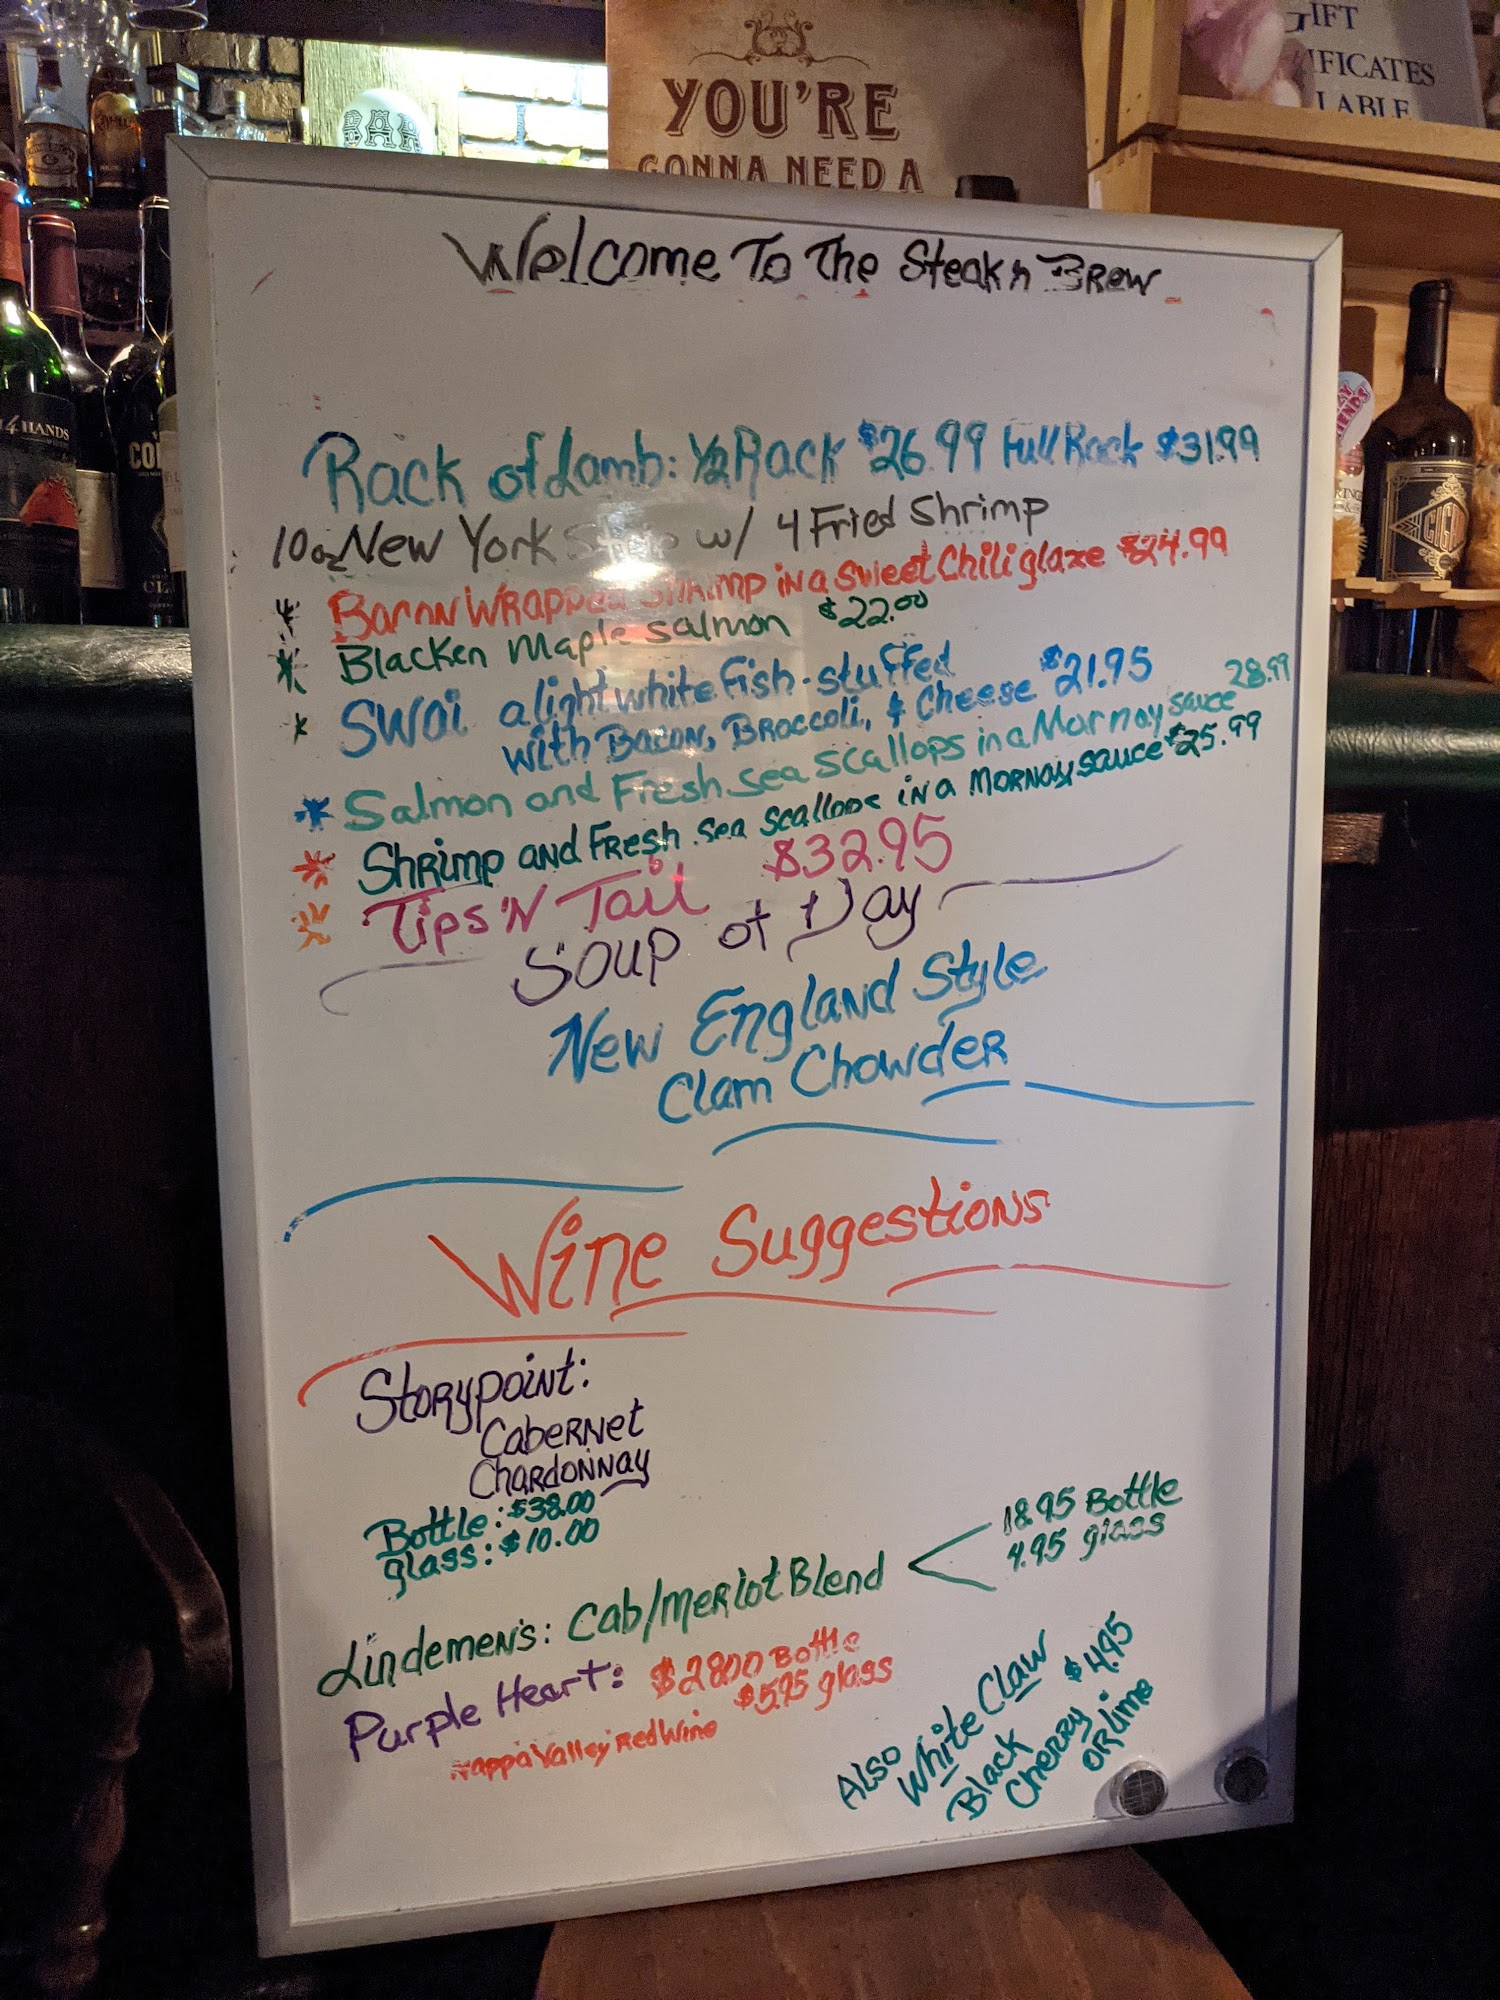 GIFT
IFICATES
LABLE
BAR
YOU'RE
GONNA NEED A
Welcome To The Steak n Brew
Rack of Lamb: 1/2 Rack $26.99 Full Rack $31.99
10oz New York Strip w/ 4 Fried Shrimp
* Bacon Wrapped Shrimp in a Sweet Chili glaze $24.99
* Blacken Maple Salmon $22.00
* Swai a light white fish - stuffed
with Bacon, Broccoli, & Cheese $21.95
* Salmon and Fresh sea scallops in a Mornay sauce 28.99
* Shrimp and Fresh sea scallops in a Mornay sauce $25.99
* Tips 'N Tail $32.95
Soup of Day
New England Style
Clam Chowder
Wine Suggestions
Storypoint:
Cabernet
Chardonnay
Bottle: $38.00
glass: $10.00
Lindemen's: Cab/Merlot Blend
18.95 Bottle
4.95 glass
Purple Heart: $28.00 Bottle
$5.95 glass
Nappa Valley Red Wine
Also White Claw $4.95
Black Cherry or Lime
4 HANDS
GIGI